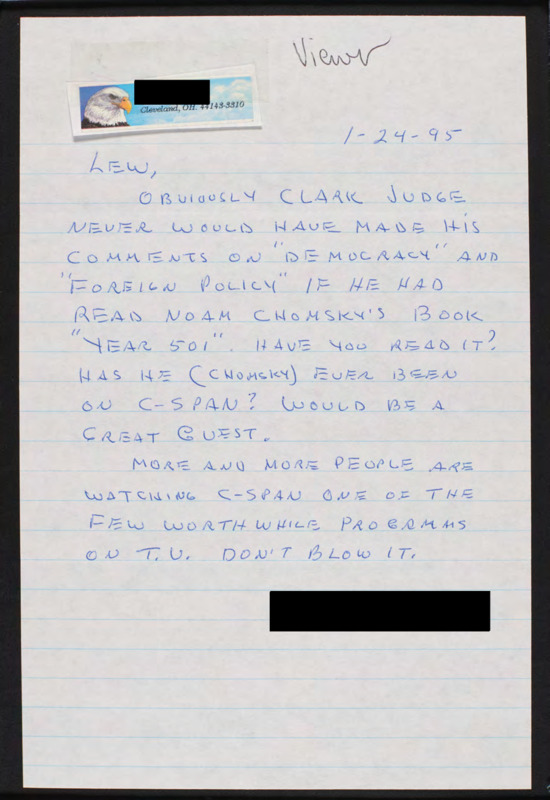 Viewer
Cleveland, OH. 44143-3310
1-24-95
LEW,
OBVIOUSLY CLARK JUDGE
NEVER WOULD HAVE MADE HIS
COMMENTS ON "DEMOCRACY" AND
"FOREIGN POLICY" IF HE HAD
READ NOAM CHOMSKY'S BOOK
"YEAR 501". HAVE YOU READ IT?
HAS HE (CHOMSKY) EVER BEEN
ON C-SPAN? WOULD BE A
GREAT GUEST.
MORE AND MORE PEOPLE ARE
WATCHING C-SPAN ONE OF THE
FEW WORTHWHILE PROGRMMS
ON T.V. DON'T BLOW IT.